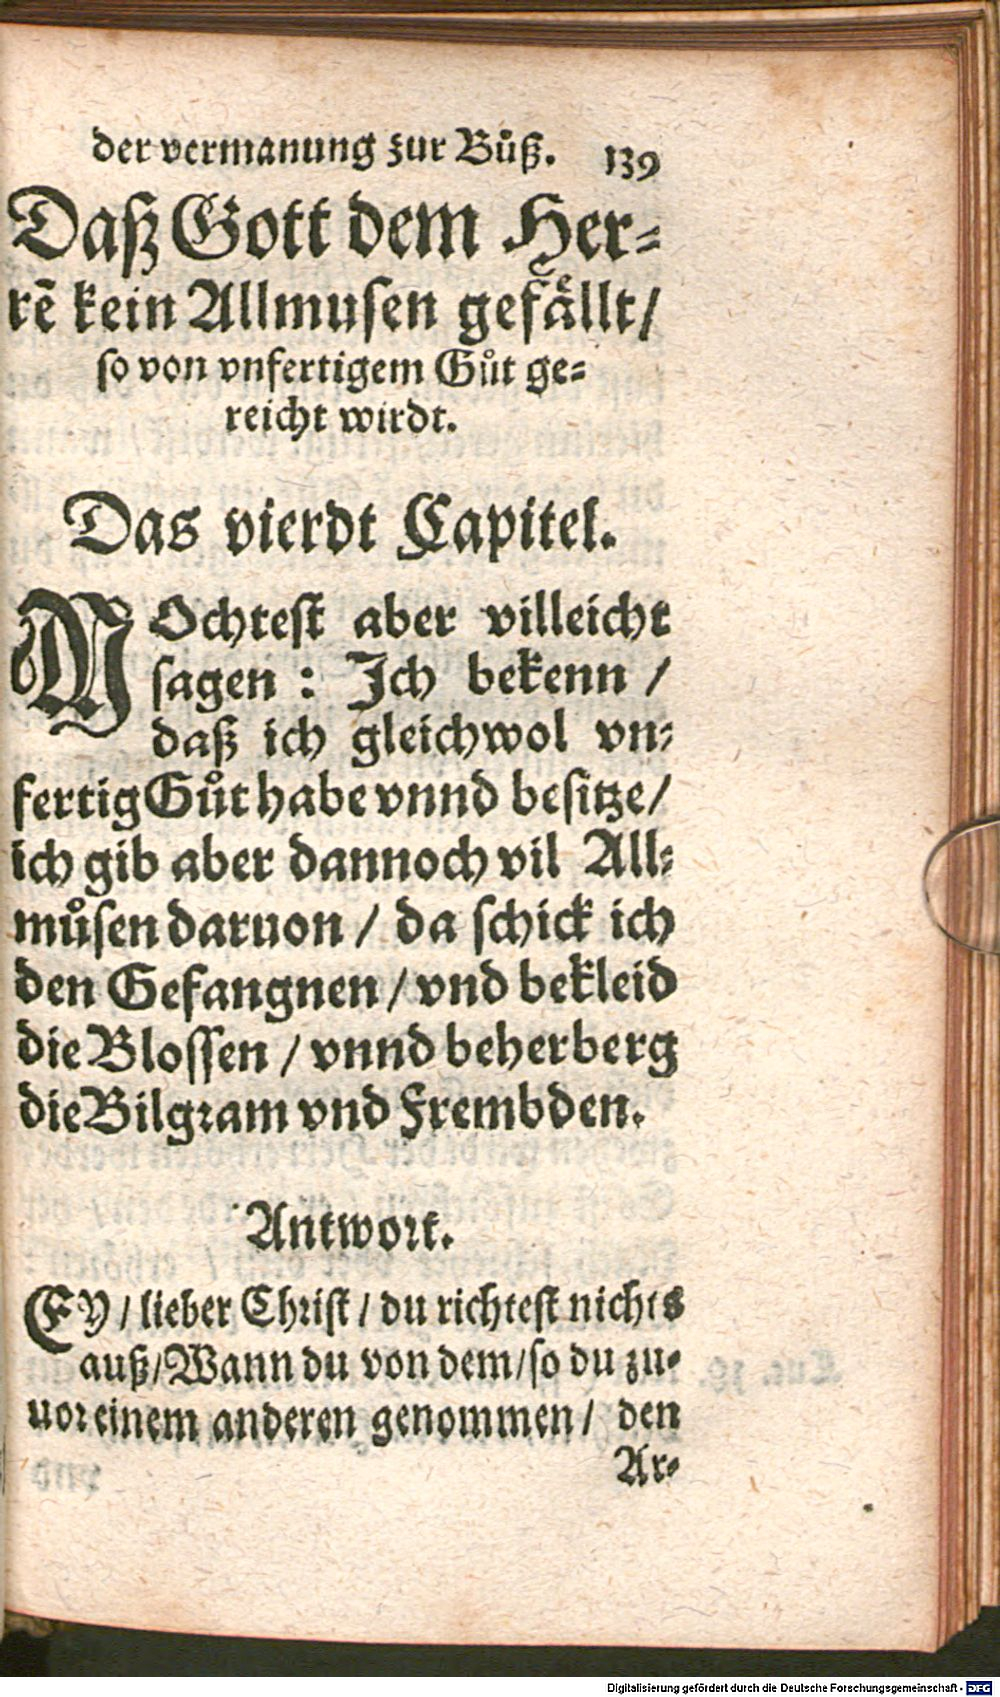 der vermanung zur Bůß. 139
Daß Gott dem Her⸗
rẽ kein Allmusen gefällt/
so von vnfertigem Gůt ge⸗
reicht wirdt.
Das vierdt Capitel.
MOchtest aber villeicht
sagen : Ich bekenn /
daß ich gleichwol vn⸗
fertig Gůt habe vnnd besitze/
ich gib aber dannoch vil All⸗
můsen daruon / da schick ich
den Gefangnen / vnd bekleid
die Blossen / vnnd beherberg
die Bilgram vnd Frembden.
Antwort.
EY / lieber Christ / du richtest nichts
auß/Wann du von dem/so du zu⸗
uor einem anderen genommen / den
Ar⸗
Digitalisierung gefördert durch die Deutsche Forschungsgemeinschaft - DFG